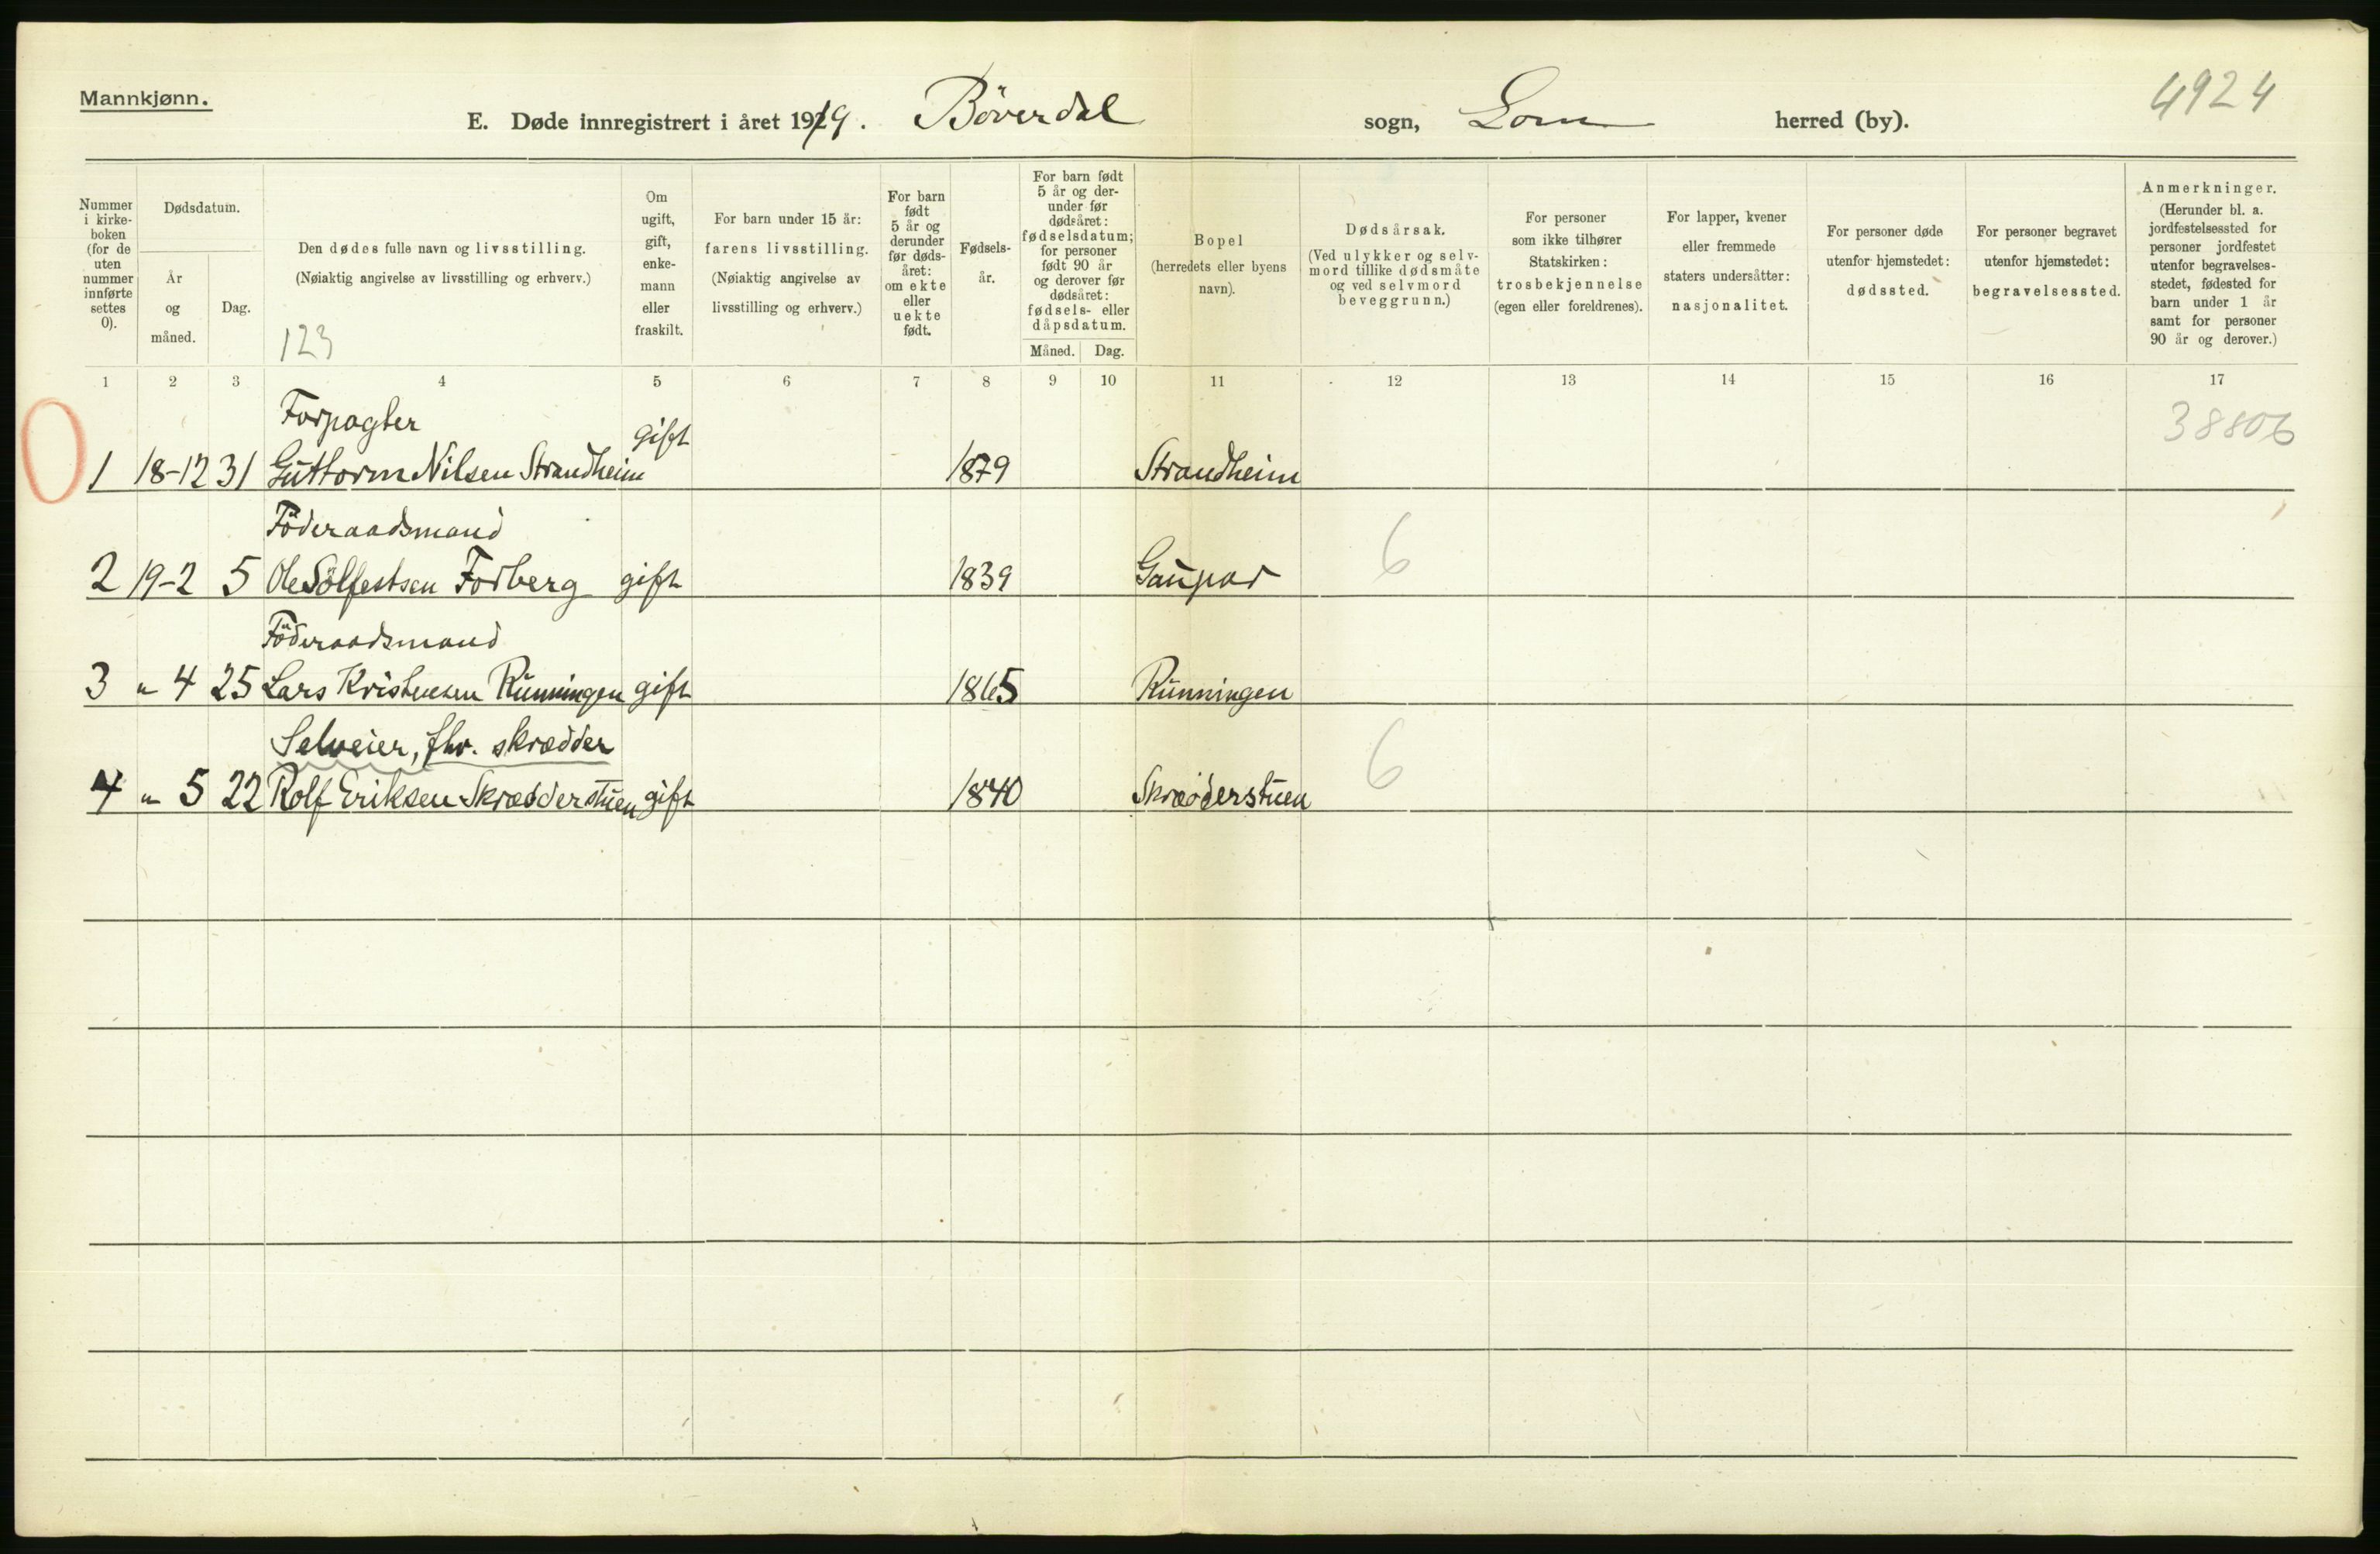 Mannkjønn.
E. Døde innregistrert i året 1919. Böverdal sogn, Lom herred (by).
4924
Nummer i kirke- boken (for de uten nummer innførte settes 0).
Dødsdatum.
År og måned.
Dag.
Den dødes fulle navn og livsstilling.
(Nøiaktig angivelse av livsstilling og erhverv.)
123
Om ugift, gift, enke- mann eller fraskilt.
For barn under 15 år:
farens livsstilling.
(Nøiaktig angivelse av livsstilling og erhverv.)
For barn født 5 år og derunder før døds- året: om ekte eller uekte født.
Fødsels- år.
For barn født 5 år og der- under før dødsåret: fødselsdatum; for personer født 90 år og derover før dødsåret: fødsels- eller dåpsdatum.
Måned. Dag.
Bopel
(herredets eller byens navn).
Dødsårsak.
(Ved ulykker og selv- mord tillike dødsmåte og ved selvmord beveggrunn.)
For personer som ikke tilhører Statskirken: trosbekjennelse (egen eller foreldrenes).
For lapper, kvener eller fremmede staters undersåtter: nasjonalitet.
For personer døde utenfor hjemstedet: dødssted.
For personer begravet utenfor hjemstedet: begravelsessted.
Anmerkninger.
(Herunder bl. a. jordfestelsessted for personer jordfestet utenfor begravelses- stedet, fødested for barn under 1 år samt for personer 90 år og derover.)
1 2 3 4 5 6 7 8 9 10 11 12 13 14 15 16 17
Forpagter gift 38806
1 18-12 31 Guttorm Nilsen Strandheim 1879 Strandheim
Föderaadsmand
2 19-2 5 Ole Sölfestsen Forberg gift 1839 Gaupar 6
Föderaadsmand
3 " 4 25 Lars Kristensen Runningen gift 1865 Runningen
Selveier, fhv. skrædder
4 " 5 22 Rolf Eriksen Skrædderstuen gift 1840 Skrædderstuen 6